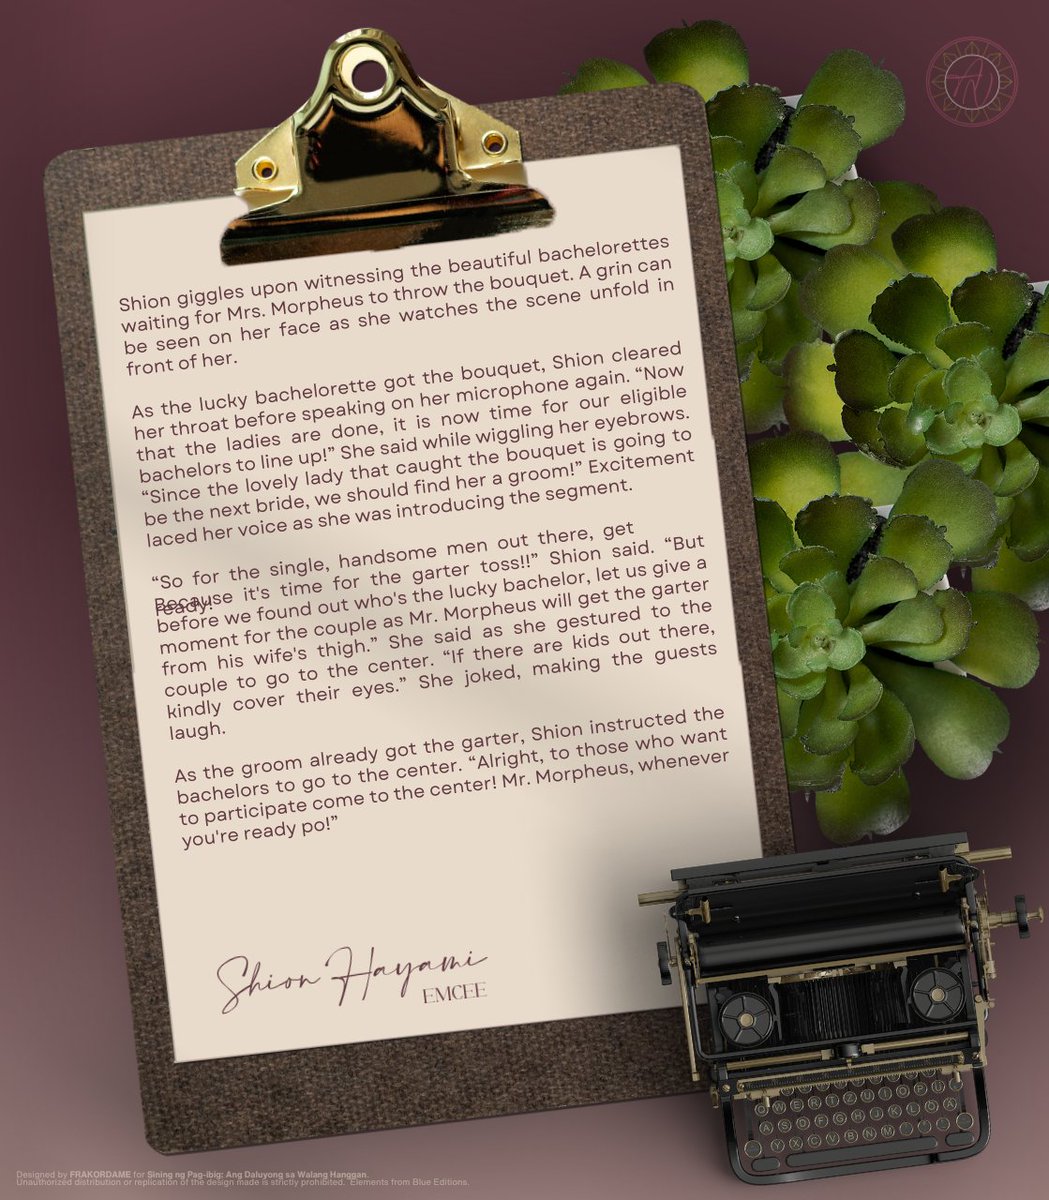 Shion giggles upon witnessing the beautiful bachelorettes
waiting for Mrs. Morpheus to throw the bouquet. A grin can
be seen on her face as she watches the scene unfold in
front of her.
As the lucky bachelorette got the bouquet, Shion cleared
her throat before speaking on her microphone again. “Now
that the ladies are done, it is now time for our eligible
bachelors to line up!” She said while wiggling her eyebrows.
“Since the lovely lady that caught the bouquet is going to
be the next bride, we should find her a groom!” Excitement
laced her voice as she was introducing the segment.
“So for the single, handsome men out there, get
ready!
Because it's time for the garter toss!!” Shion said. “But
before we found out who's the lucky bachelor, let us give a
moment for the couple as Mr. Morpheus will get the garter
from his wife's thigh.” She said as she gestured to the
couple to go to the center. “If there are kids out there,
kindly cover their eyes.” She joked, making the guests
laugh.
As the groom already got the garter, Shion instructed the
bachelors to go to the center. “Alright, to those who want
to participate come to the center! Mr. Morpheus, whenever
you're ready po!”
Shion Hayami
EMCEE
Q W E R T Z U I O P Ü
A S D F G H J K L Ö Ä
Y X C V B N M
Designed by FRAKORDAME for Sining ng Pag-ibig: Ang Daluyong sa Walang Hanggan.
Unauthorized distribution or replication of the design made is strictly prohibited. Elements from Blue Editions.